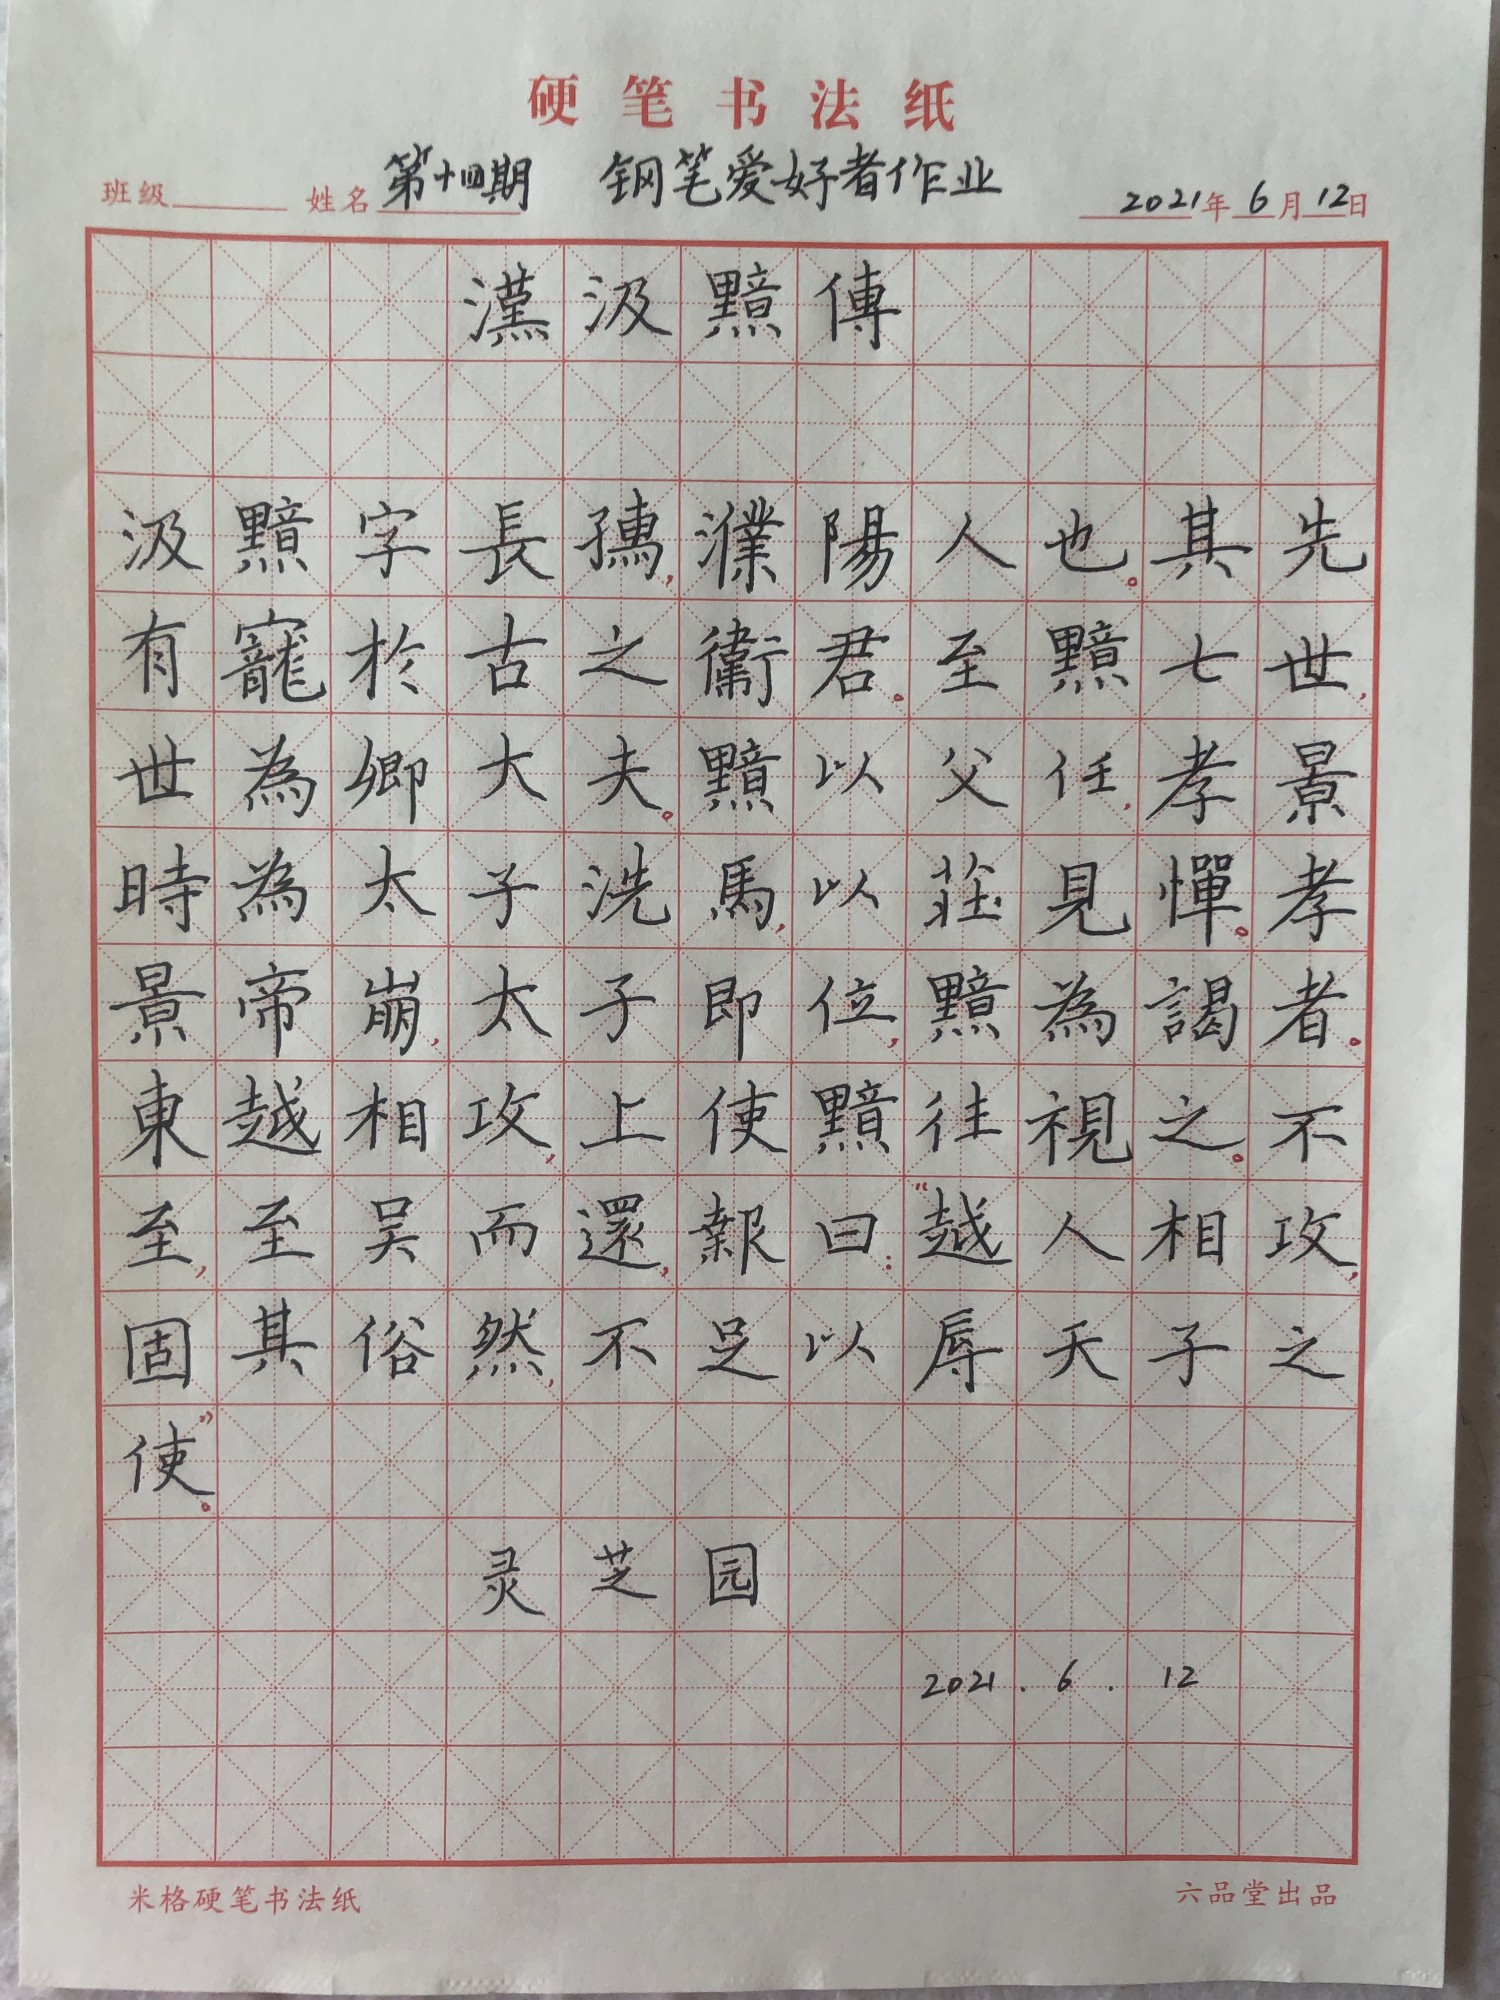 硬笔书法纸
班级 姓名 第十四期 钢笔爱好者作业 2021年6月12日
漢汲黯傳
汲黯字長孺,濮陽人也。其先
有寵於古之衛君。至黯七世,
世為卿大夫。黯以父任,孝景
時為太子洗馬,以莊見憚。孝
景帝崩,太子即位,黯為謁者。
東越相攻,上使黯往視之。不
至,至吳而還,報曰:“越人相攻,
固其俗然,不足以辱天子之
使。”
灵芝园
2021.6.12
米格硬笔书法纸 六品堂出品